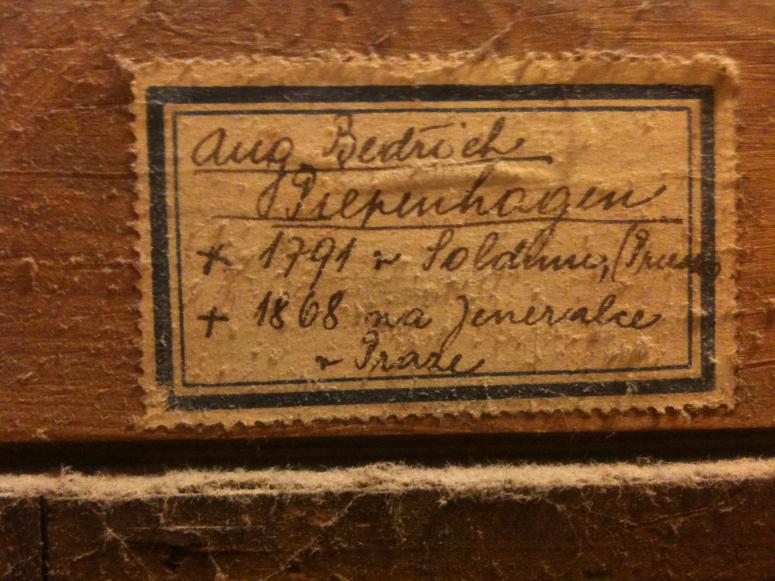 Aug. Bedřich
Piepenhagen
* 1791 v Soldinu, (Prusko
+ 1868 na Jeneralce
v Praze